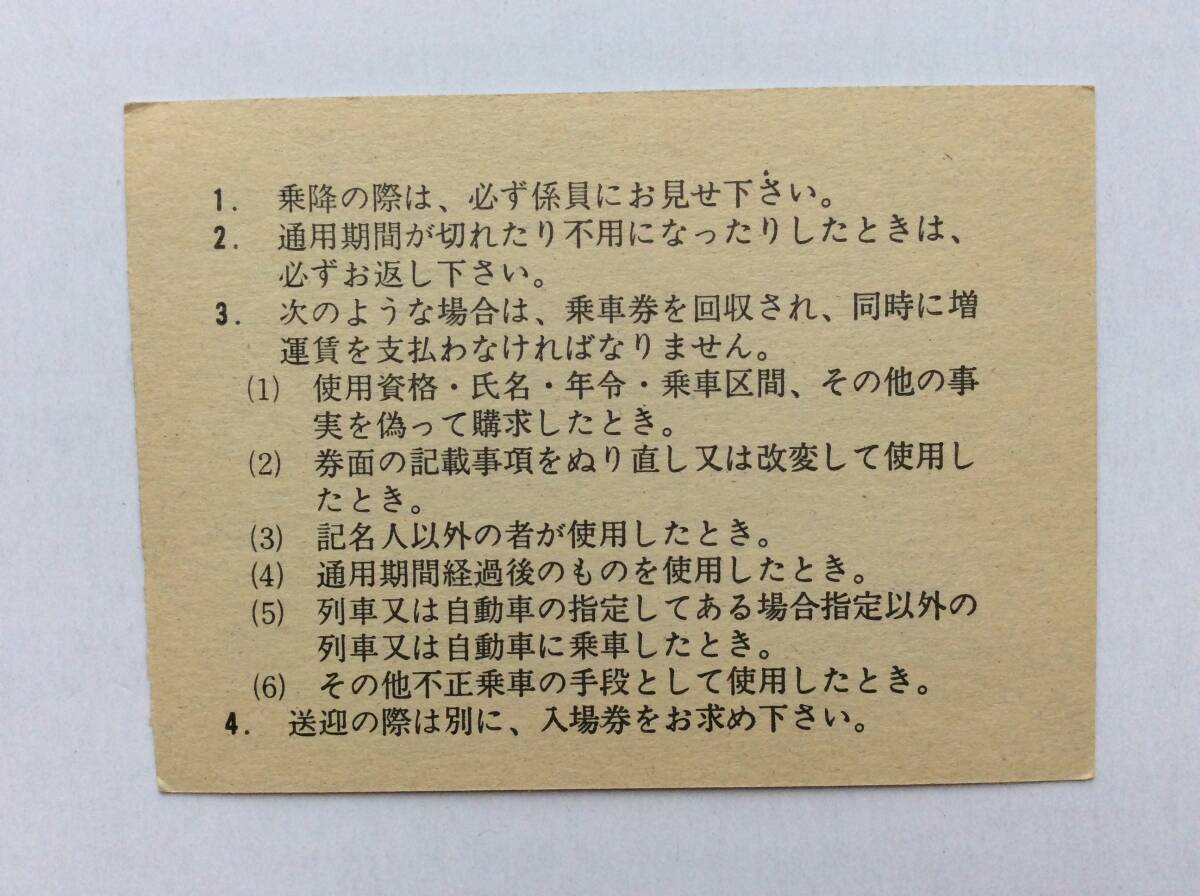 1. 乗降の際は、必ず係員にお見せ下さい。
2. 通用期間が切れたり不用になったりしたときは、
必ずお返し下さい。
3. 次のような場合は、乗車券を回収され、同時に増
運賃を支払わなければなりません。
(1) 使用資格・氏名・年令・乗車区間、その他の事
実を偽って購求したとき。
(2) 券面の記載事項をぬり直し又は改変して使用し
たとき。
(3) 記名人以外の者が使用したとき。
(4) 通用期間経過後のものを使用したとき。
(5) 列車又は自動車の指定してある場合指定以外の
列車又は自動車に乗車したとき。
(6) その他不正乗車の手段として使用したとき。
4. 送迎の際は別に、入場券をお求め下さい。